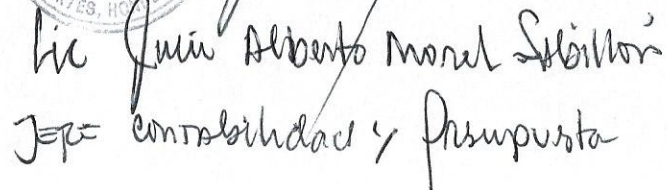 TES, HO
Lic Julio Alberto Morel Sabillón
JEFE contabilidad y Presupuesto